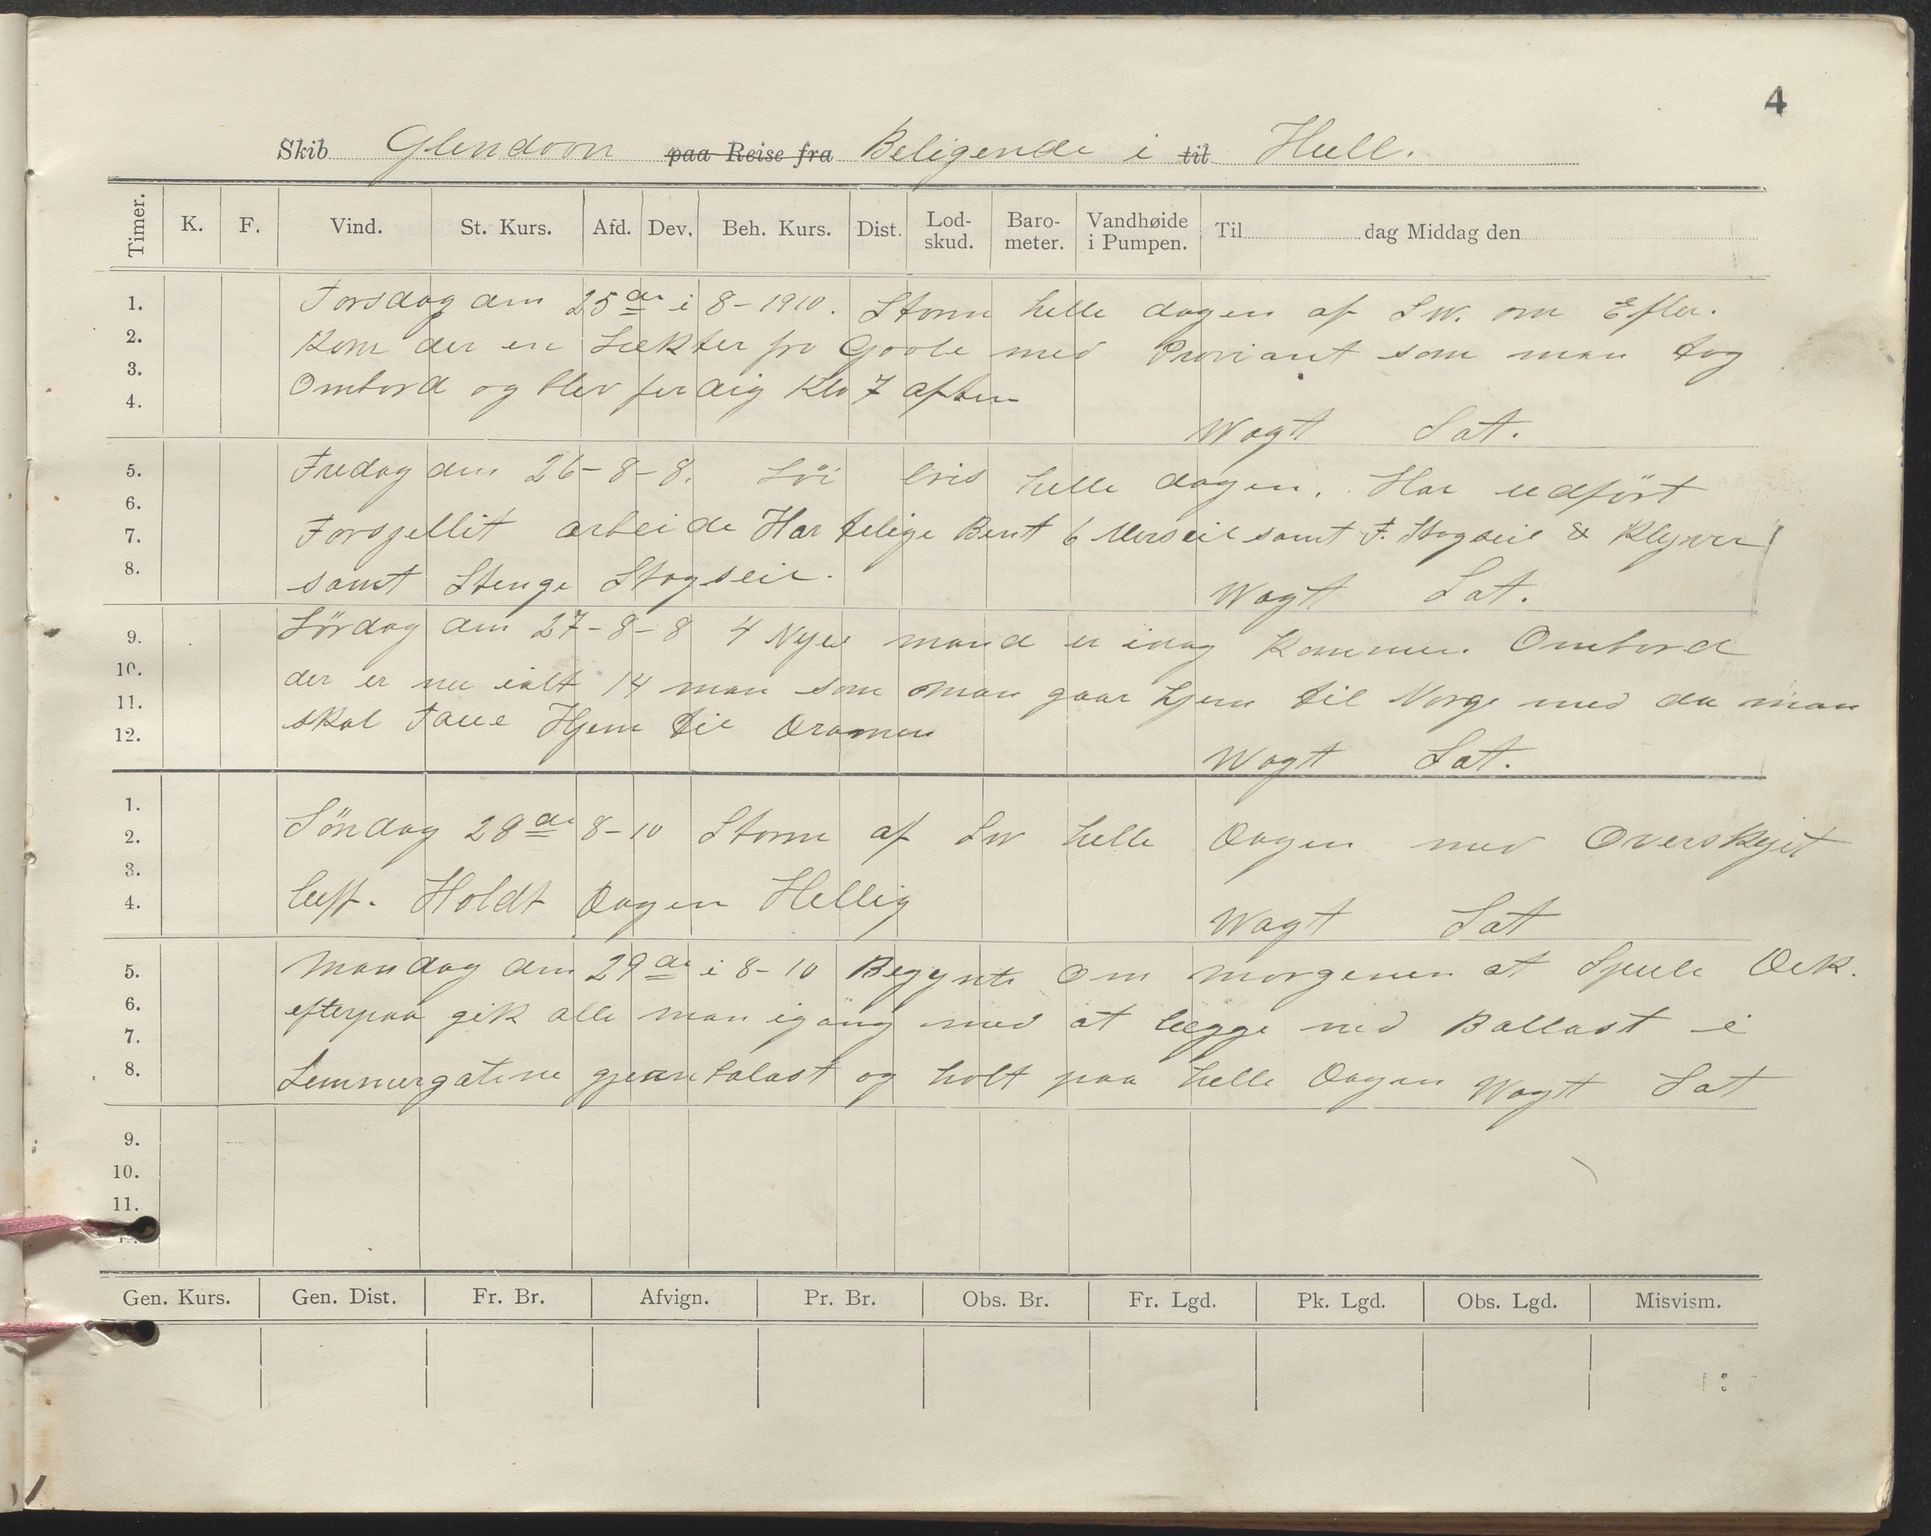 4
Skib Glendoon paa Reise fra Beligende i til Hull.
Timer. K. F. Vind. St. Kurs. Afd. Dev. Beh. Kurs. Dist. Lod-skud. Baro-meter. Vandhøide i Pumpen. Til dag Middag den
1. Torsdag den 25de i 8-1910. Storm helle dagen af SW. om Efter.
2. Kom der en Lækter fra Goole med Proviant som man tog
3. Ombord og blev ferdig Klo 7 aften
4. Wagt Sat.
5. Fredag den 26-8-8. Löi bris helle dagen. Har udfört
6. Forsjellit arbeide Har
7. Bent 6 Merseil samt F. Stagseil & Klyver
8. samt Stenge Stagseil. Wagt Sat.
9. Lördag den 27-8-8 4 Nye mand er idag Kommen Ombord
10. der er nu ialt 14 man som man gaar hjem til Norge med da man
11. skal Taue Hjem til Dramen
12. Wagt Sat.
1.
2. Söndag 28de 8-10 Storm af SW helle Dagen med Overskyit
3.
4. luft. Holdt Dagen Hellig Wagt Sat
5. Mandag den 29de i 8-10 Begynte Om morgenen at Spule Dek.
6. efterpaa gik alle man igang med at lægge ned Ballast i
7.
8. Lemmergatene gjenntalast og holt paa helle Dagen Wagt Sat
9.
10.
11.
Gen. Kurs. Gen. Dist. Fr. Br. Afvign. Pr. Br. Obs. Br. Fr. Lgd. Pk. Lgd. Obs. Lgd. Misvism.